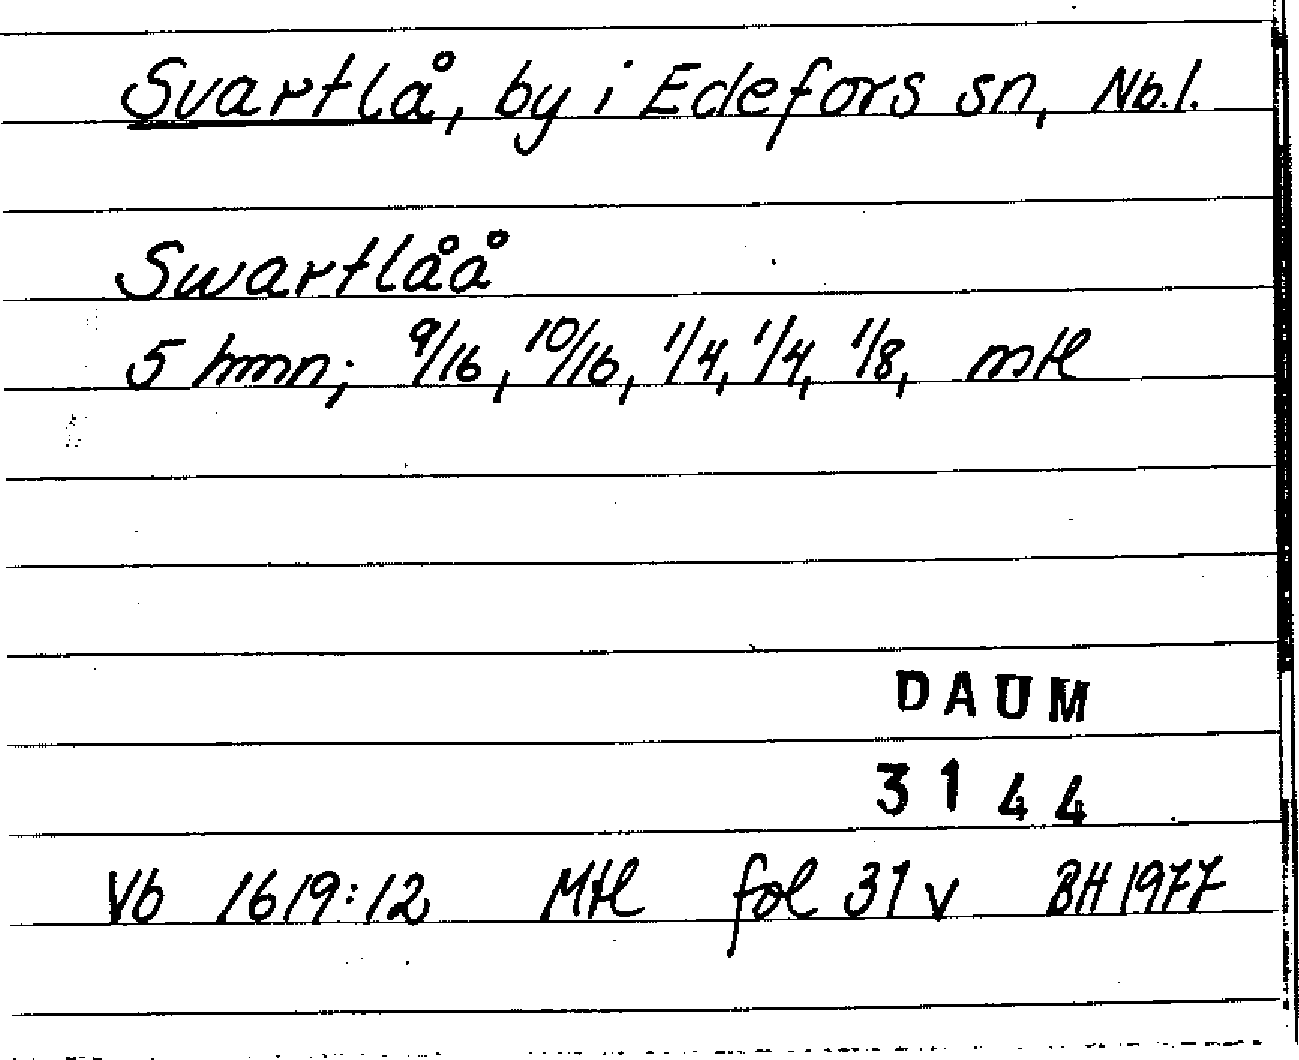 Svartlå, by i Edefors sn, Nb.l.
Swartlåå
5 hmn; 9/16, 10/16, 1/4, 1/4, 1/8, mtl
DAUM
3144
Vb 1619:12 Mtl fol 31 v BH 1977